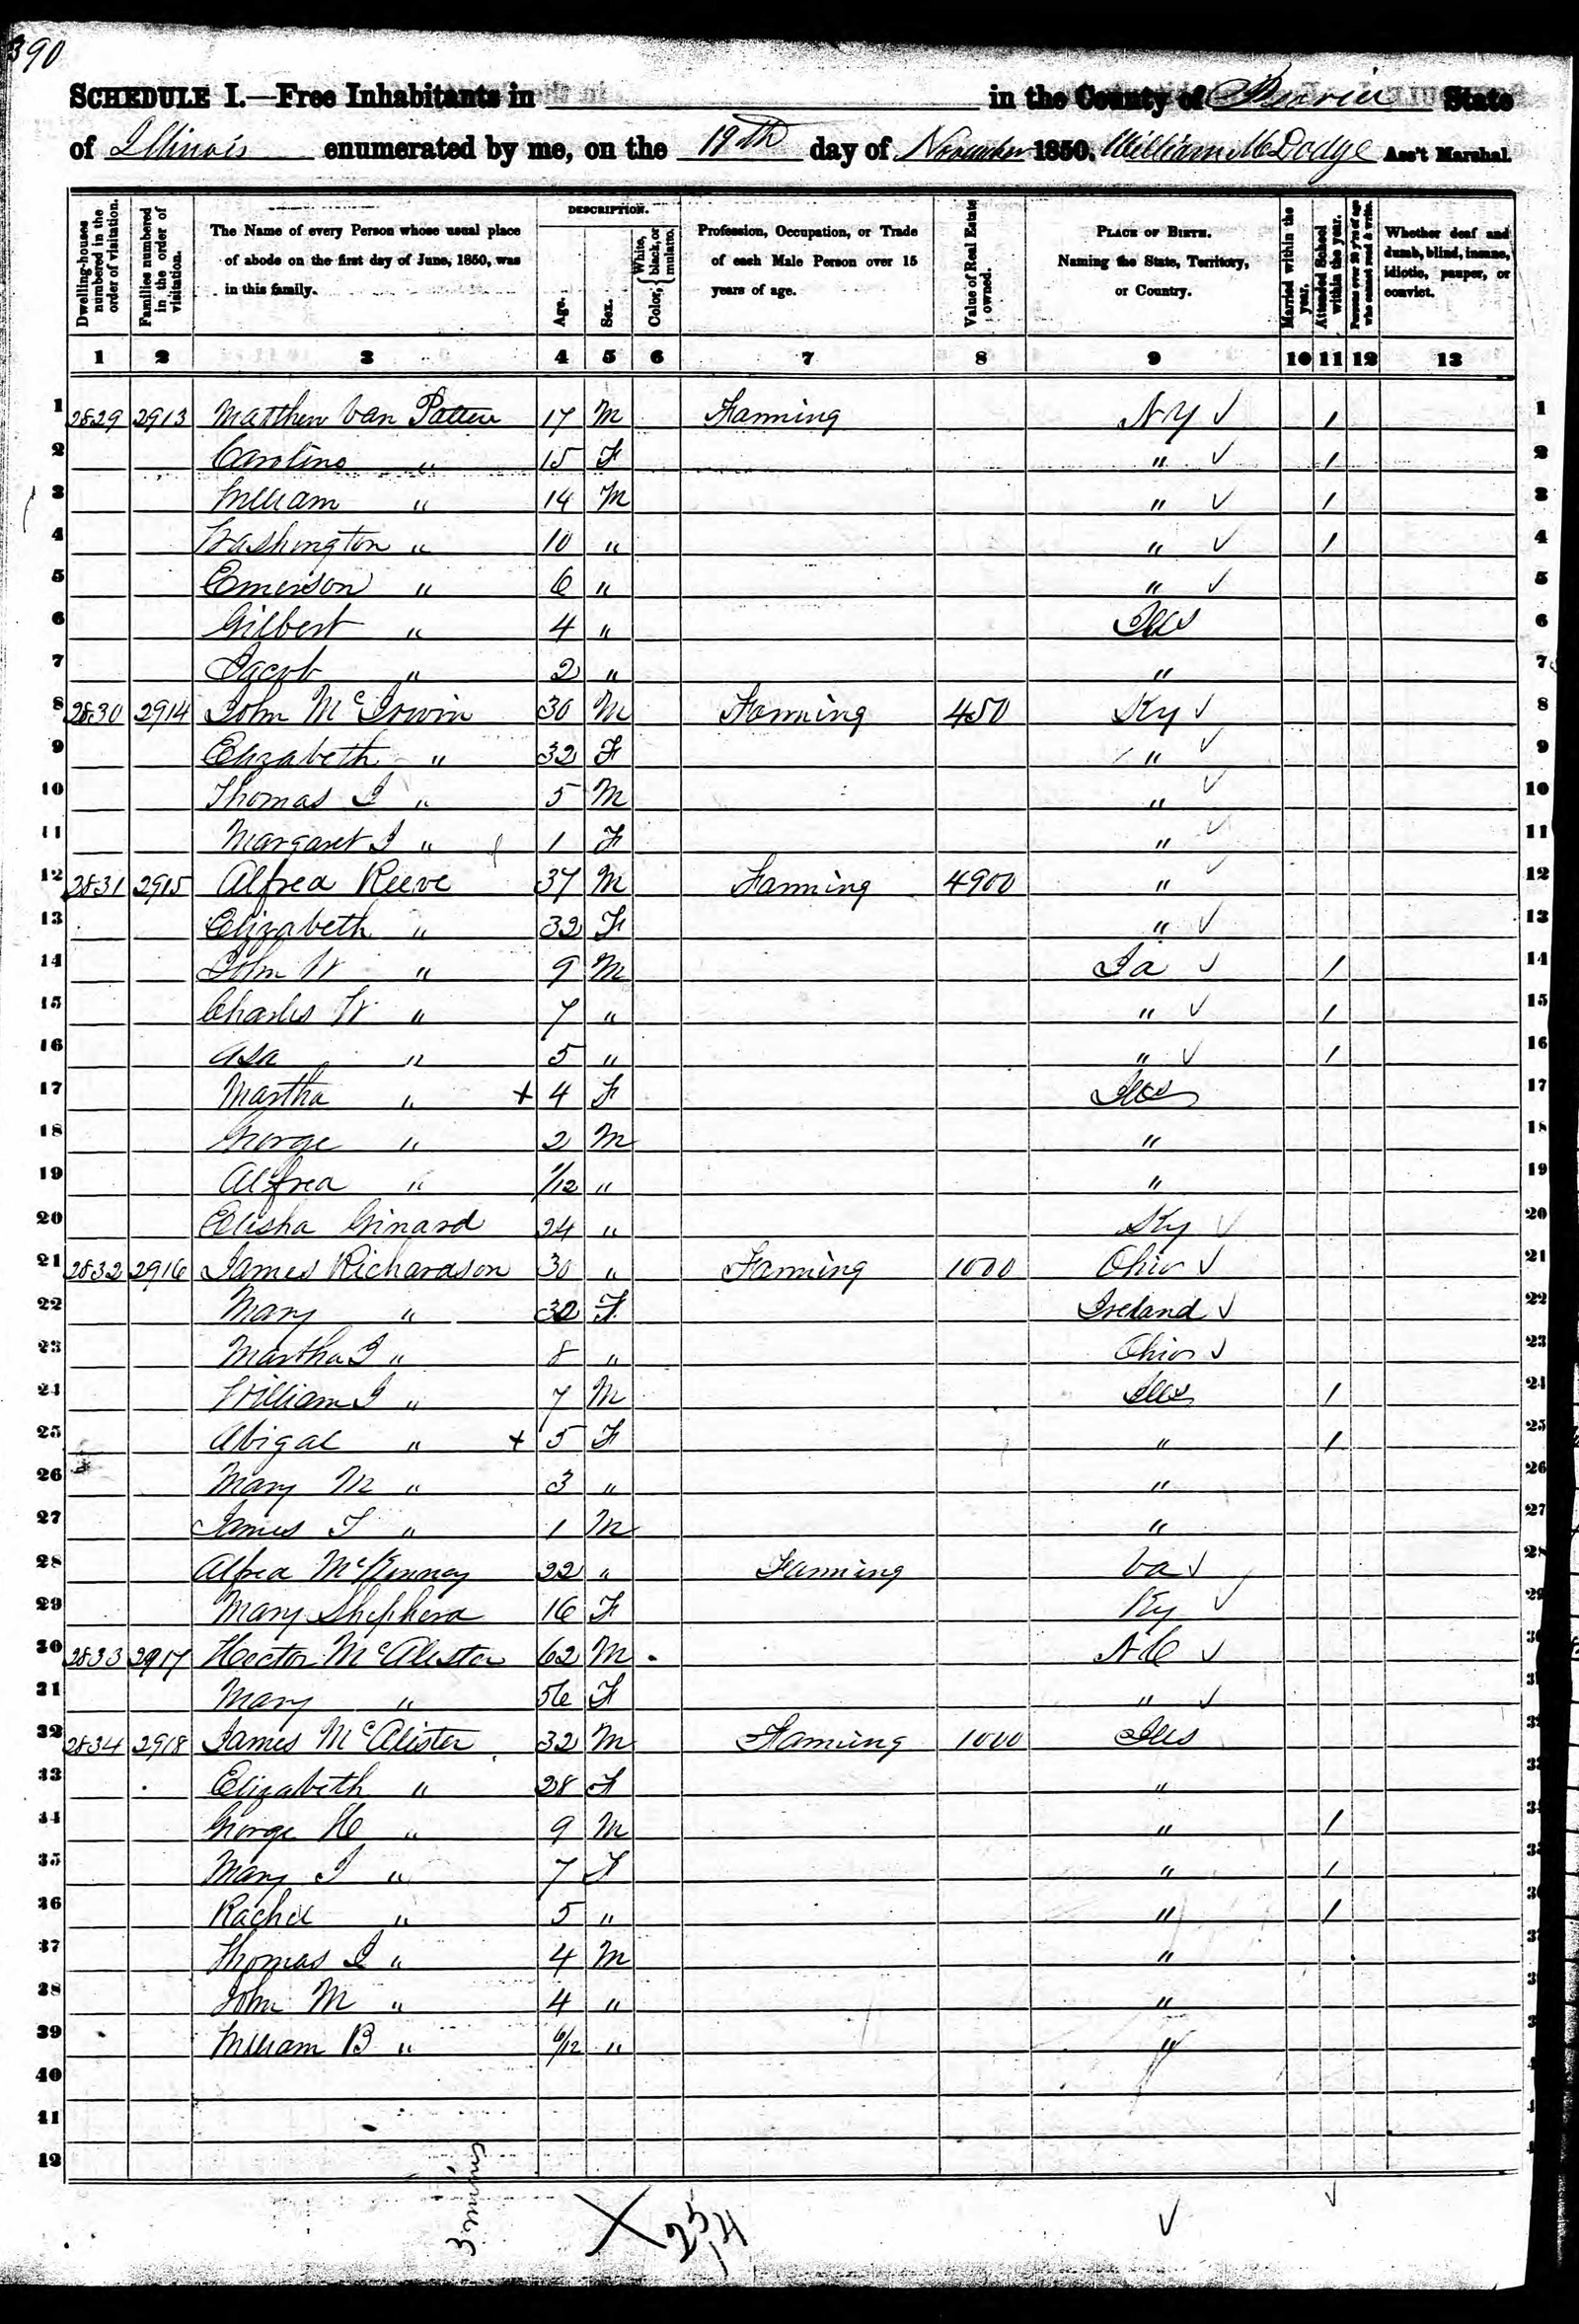 390
SCHEDULE I.—Free Inhabitants in in the County of Peoria State
of Illinois enumerated by me, on the 19th day of November 1850. William M Dodge Ass't Marshal.
Dwelling-houses numbered in the order of visitation. Families numbered in the order of visitation. The Name of every Person whose usual place of abode on the first day of June, 1850, was in this family. DESCRIPTION. Age. Sex. Color, White, black, or mulatto. Profession, Occupation, or Trade of each Male Person over 15 years of age. Value of Real Estate owned. PLACE OF BIRTH. Naming the State, Territory, or Country. Married within the year. Attended School within the year. Persons over 20 y'rs of age who cannot read & write. Whether deaf and dumb, blind, insane, idiotic, pauper, or convict.
1 2 3 4 5 6 7 8 9 10 11 12 13
1 2829 2913 Matthew Van Patten 17 M Farming NY ✓ / 1
2 Caroline " 15 F " ✓ / 2
3 William " 14 M " ✓ / 3
4 Washington " 10 " " ✓ / 4
5 Emerson " 6 " " ✓ 5
6 Gilbert " 4 " Ills 6
7 Jacob " 2 " " 7
8 2830 2914 John McIrwin 30 M Farming 450 Ky ✓ 8
9 Elizabeth " 32 F " ✓ 9
10 Thomas J " 5 M " ✓ 10
11 Margaret J " 1 F " ✓ 11
12 2831 2915 Alfred Reeve 37 M Farming 4900 " ✓ 12
13 Elizabeth " 32 F " ✓ 13
14 John W " 9 M Ia ✓ / 14
15 Charles W " 7 " " ✓ / 15
16 Asa " 5 " " ✓ / 16
17 Martha " + 4 F Ills 17
18 George " 2 M " 18
19 Alfred " 1/12 " " 19
20 Elisha Ginard 24 " Ky ✓ 20
21 2832 2916 James Richardson 30 " Farming 1000 Ohio ✓ 21
22 Mary " 32 F Ireland ✓ 22
23 Martha J " 8 " Ohio ✓ 23
24 William J " 7 M Ills / 24
25 Abigal " + 5 F " / 25
26 Mary M " 3 " " 26
27 James T " 1 M " 27
28 Alfred McKinney 22 " Farming Va ✓ 28
29 Mary Shepherd 16 F Ky ✓ 29
30 2833 2917 Hector McAlister 62 M NC ✓
31 Mary " 56 F " ✓
32 2834 2918 James McAlister 32 M Farming 1000 Ills
33 Elizabeth " 28 F "
34 George H " 9 M " /
35 Mary J " 7 F " /
36 Rachel " 5 " " /
37 Thomas J " 4 M "
38 John M " 4 " "
39 William B " 6/12 " "
40
41
42
3 mins X 25 14 ✓ ✓